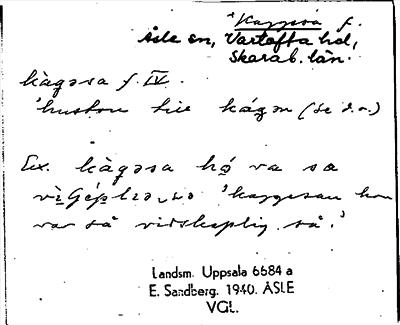 *Kaggesa f.
Åsle sn, Vartofta hd,
Skarab. län.
kàgəsa f. IV.
'hustru till kágən (se d.o.)
Ex. kàgəsa hó va sa
'kaggesan hon
var så vidskaplig så.'
Landsm. Uppsala 6684 a
E. Sandberg. 1940. ÅSLE
VGL.